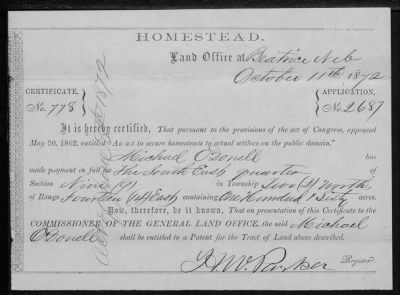 HOMESTEAD.
Land Office at Beatrice Neb
October 11th 1872
CERTIFICATE, No. 778
APPLICATION, No. 2687
It is hereby certified, That pursuant to the provisions of the act of Congress, approved
May 20, 1862, entitled "An act to secure homesteads to actual settlers on the public domain,"
Michael O'Donell has
made payment in full for The South East quarter of
Section Nine (9) in Township Two (2) North,
of Range Fourteen (14) East containing One Hundred & Sixty acres.
Now, therefore, be it known, That on presentation of this Certificate to the
COMMISSIONER OF THE GENERAL LAND OFFICE, the said Michael
O'Donell shall be entitled to a Patent for the Tract of Land above described.
Register.
1872